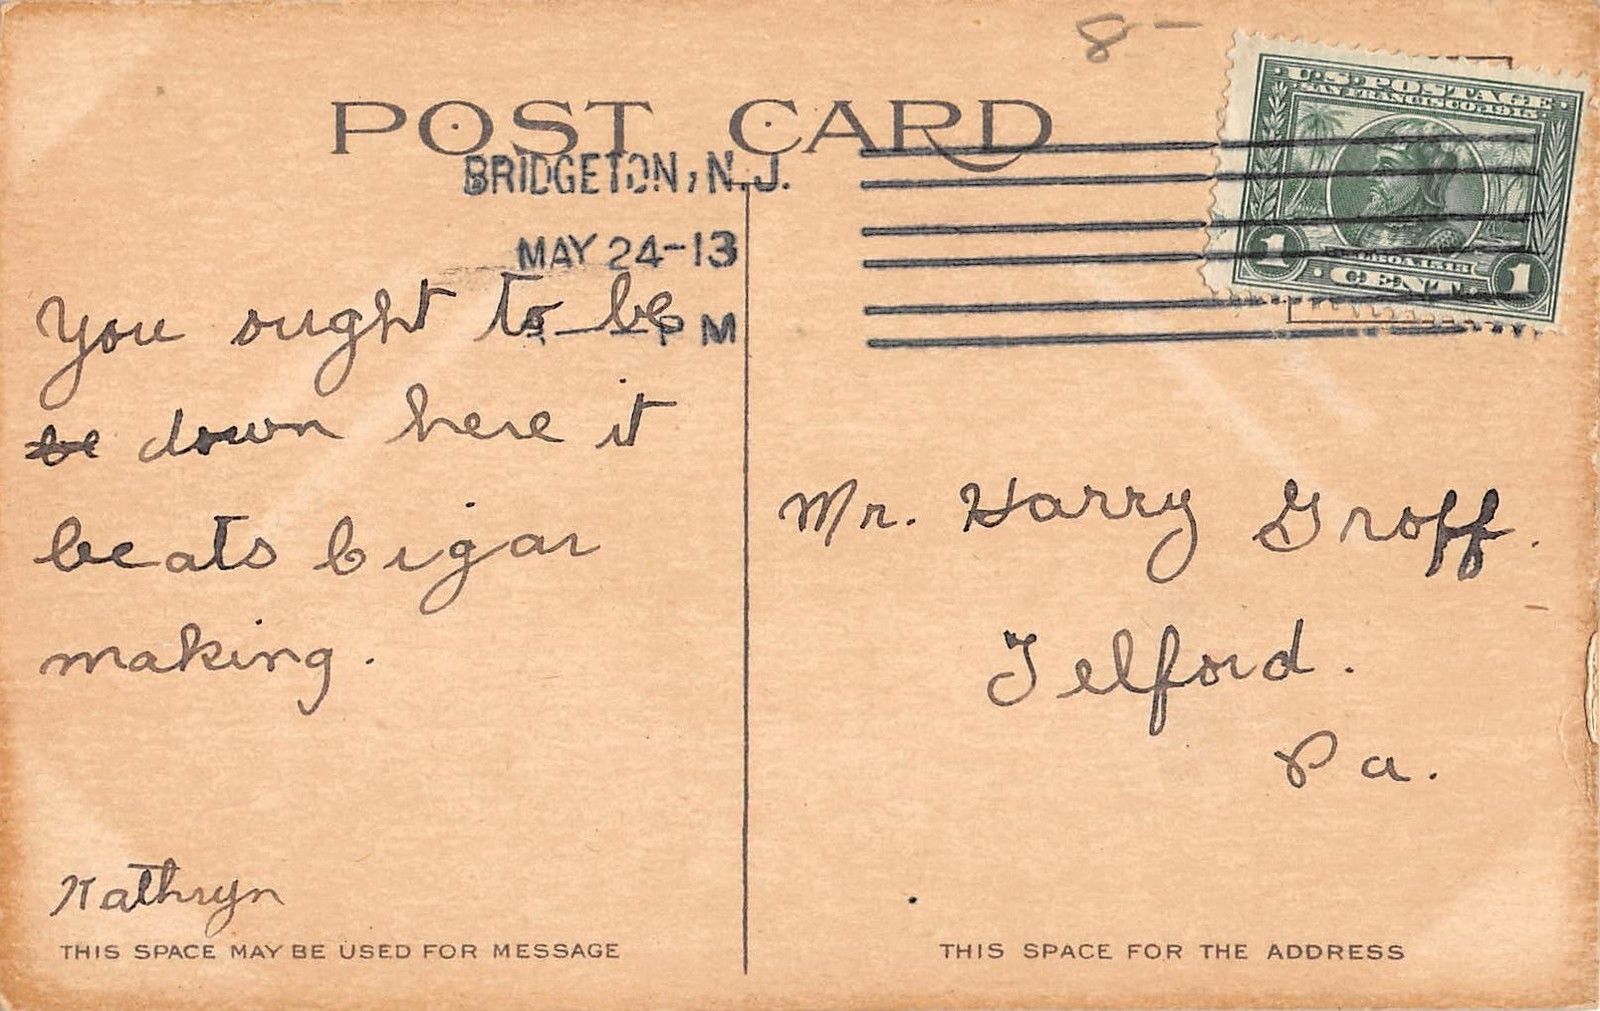 8-
POST CARD
BRIDGETON, N.J.
MAY 24-13
PM
U.S. POSTAGE
SAN FRANCISCO 1915
1 CENT 1
You ought to be
be down here it
beats Cigar
making.
Kathryn
Mr. Harry Groff.
Telford.
Pa.
THIS SPACE MAY BE USED FOR MESSAGE
THIS SPACE FOR THE ADDRESS